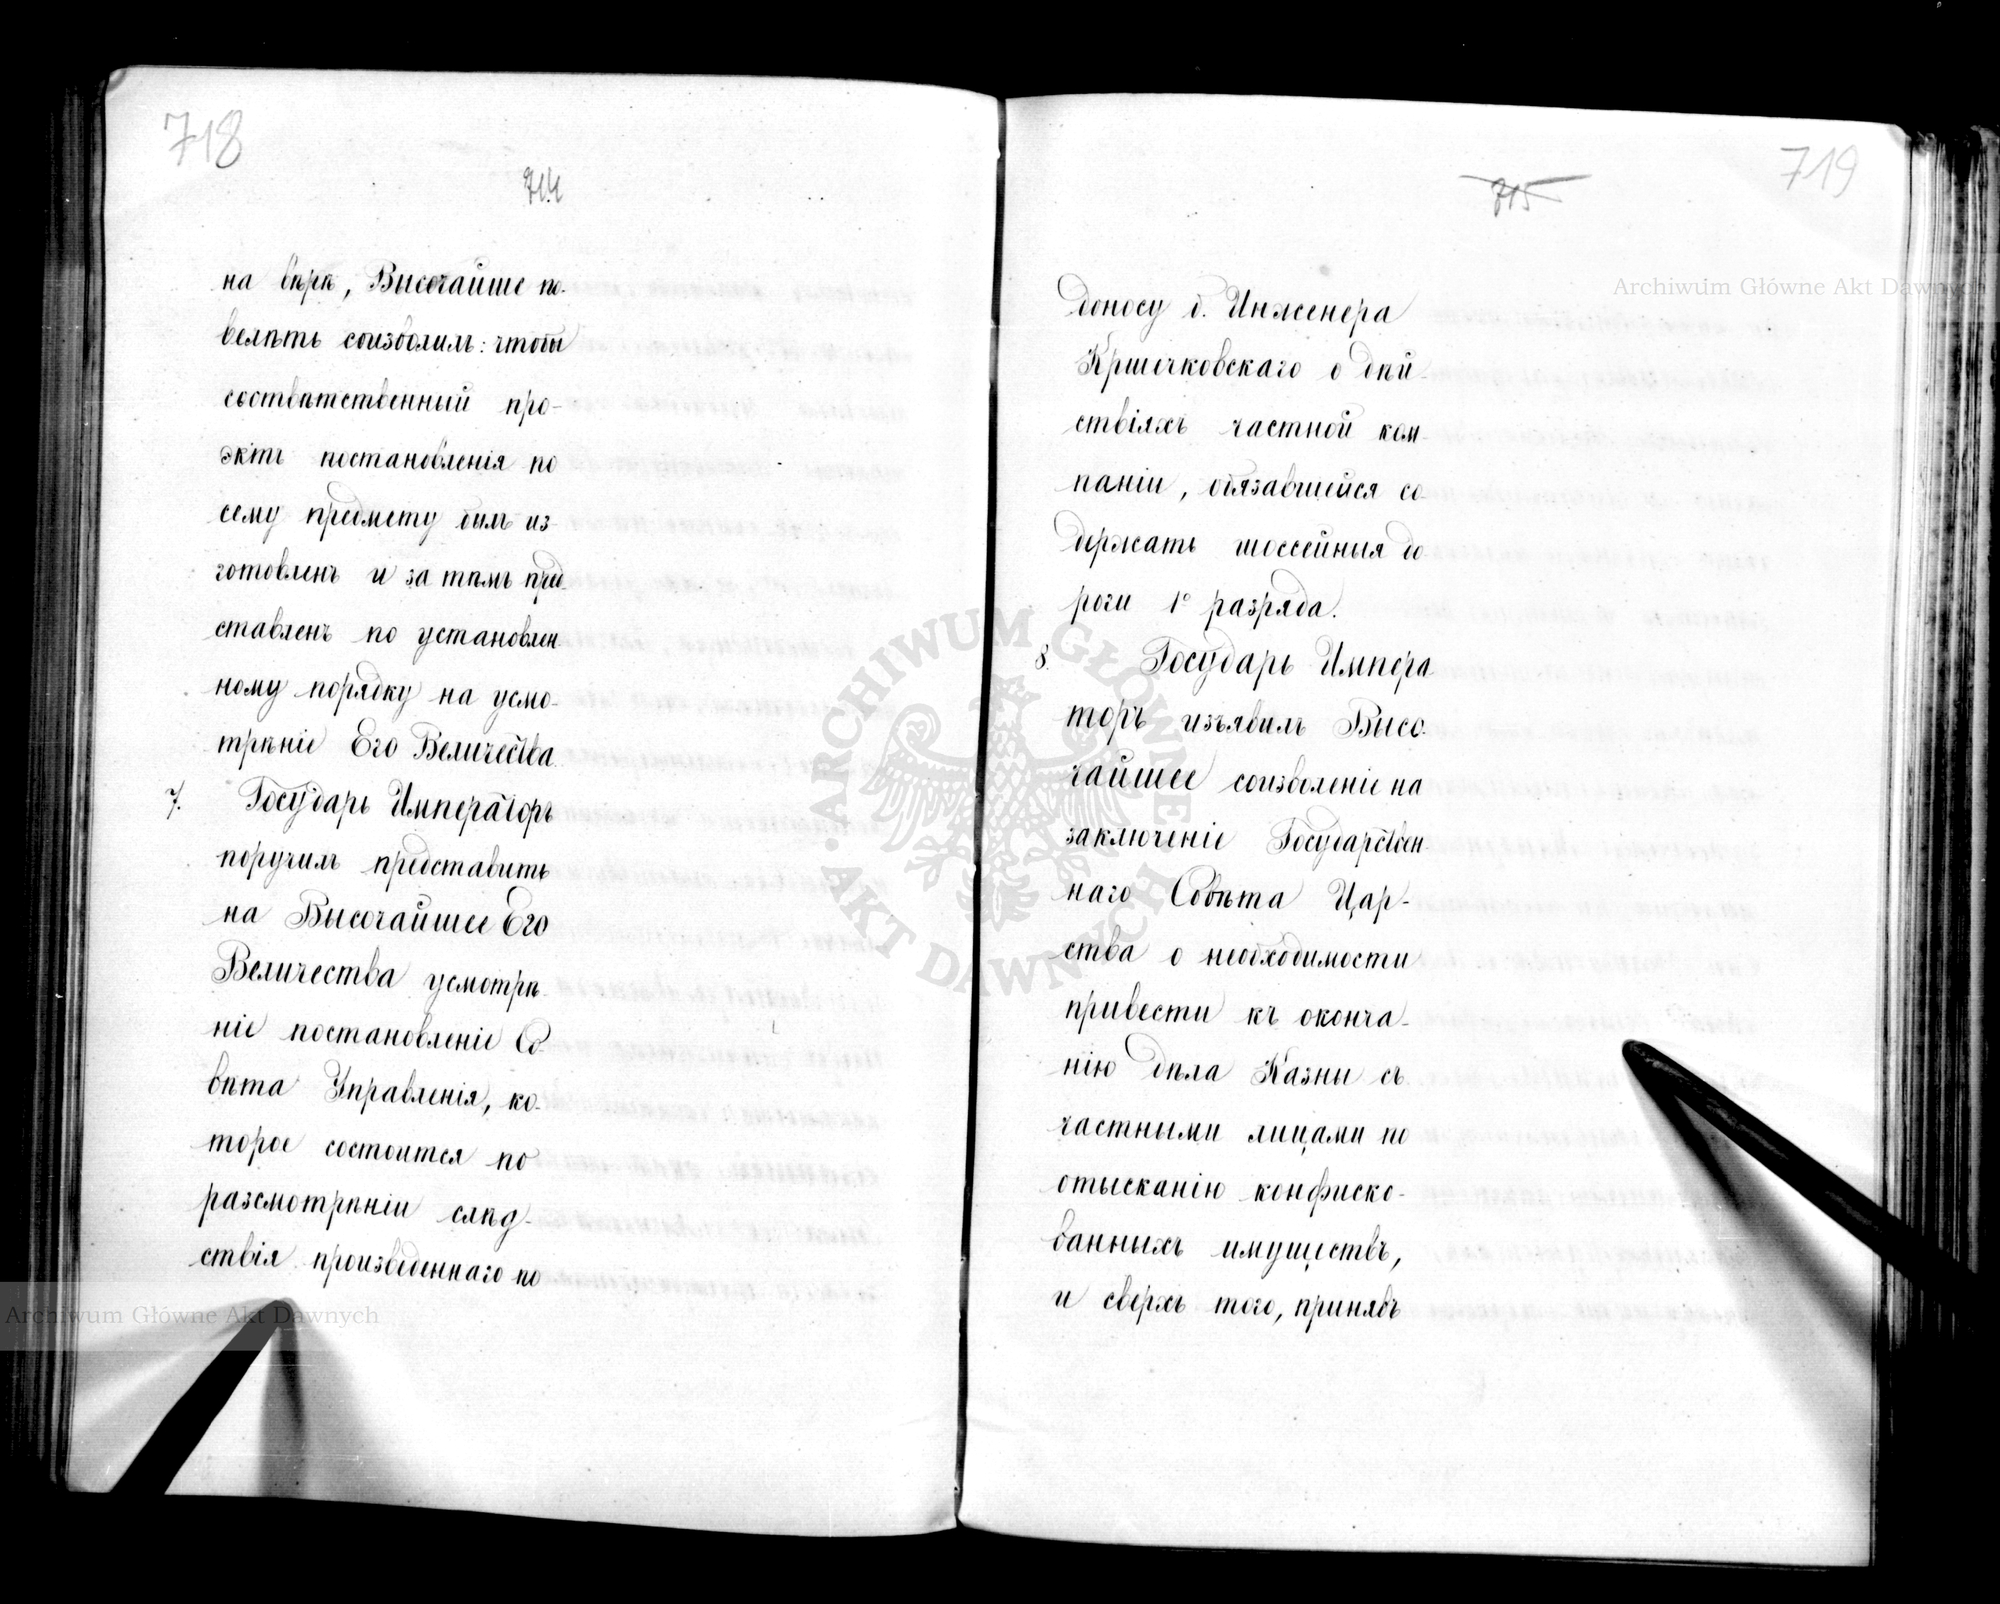 718
714
на вѣрѣ, Высочайше по-
велѣть соизволилъ: чтобы
соствѣтственный про-
эктъ постановленія по
сему предмету былъ из-
готовленъ и за тѣмъ пред
ставленъ по установлен
ному порядку на усмо-
трѣніе Его Величества.
7. Государь Императоръ
поручилъ представить
на Высочайшее Его
Величества усмотрѣ-
ніе постановленіе Со-
вѣта Управленія, ко-
торое состоится по
разсмотрѣніи слѣд-
ствія произведеннаго по
719
715
доносу б. Инженера
Кршечковскаго о дѣй-
ствіяхъ частной ком-
паніи, обязавшейся со
держать шоссейныя до
роги 1º разряда.
8. Государь Импера-
торъ изъявилъ Высо-
чайшее соизволеніе на
заключеніе Государствен
наго Совѣта Цар-
ства о необходимости
привести къ оконча-
нію дѣла Казны съ
частными лицами по
отысканію конфиско-
ванныхъ имуществъ,
и сверхъ того, принявъ
Archiwum Główne Akt Dawnych
Archiwum Główne Akt Dawnych
ARCHIWUM GŁÓWNE AKT DAWNYCH